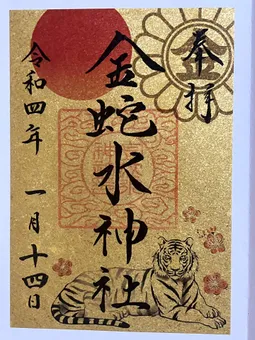 奉拝
金
金蛇水神社
令和四年 一月十四日